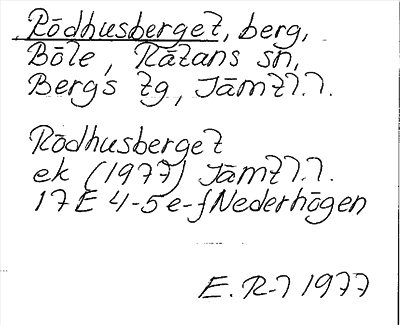 Rödhusberget, berg,
Böle, Rätans sn,
Bergs tg, Jämtl.l.
Rödhusberget
ek (1977) Jämtl.l.
17E 4-5e-f Nederhögen
E.R-l 1977